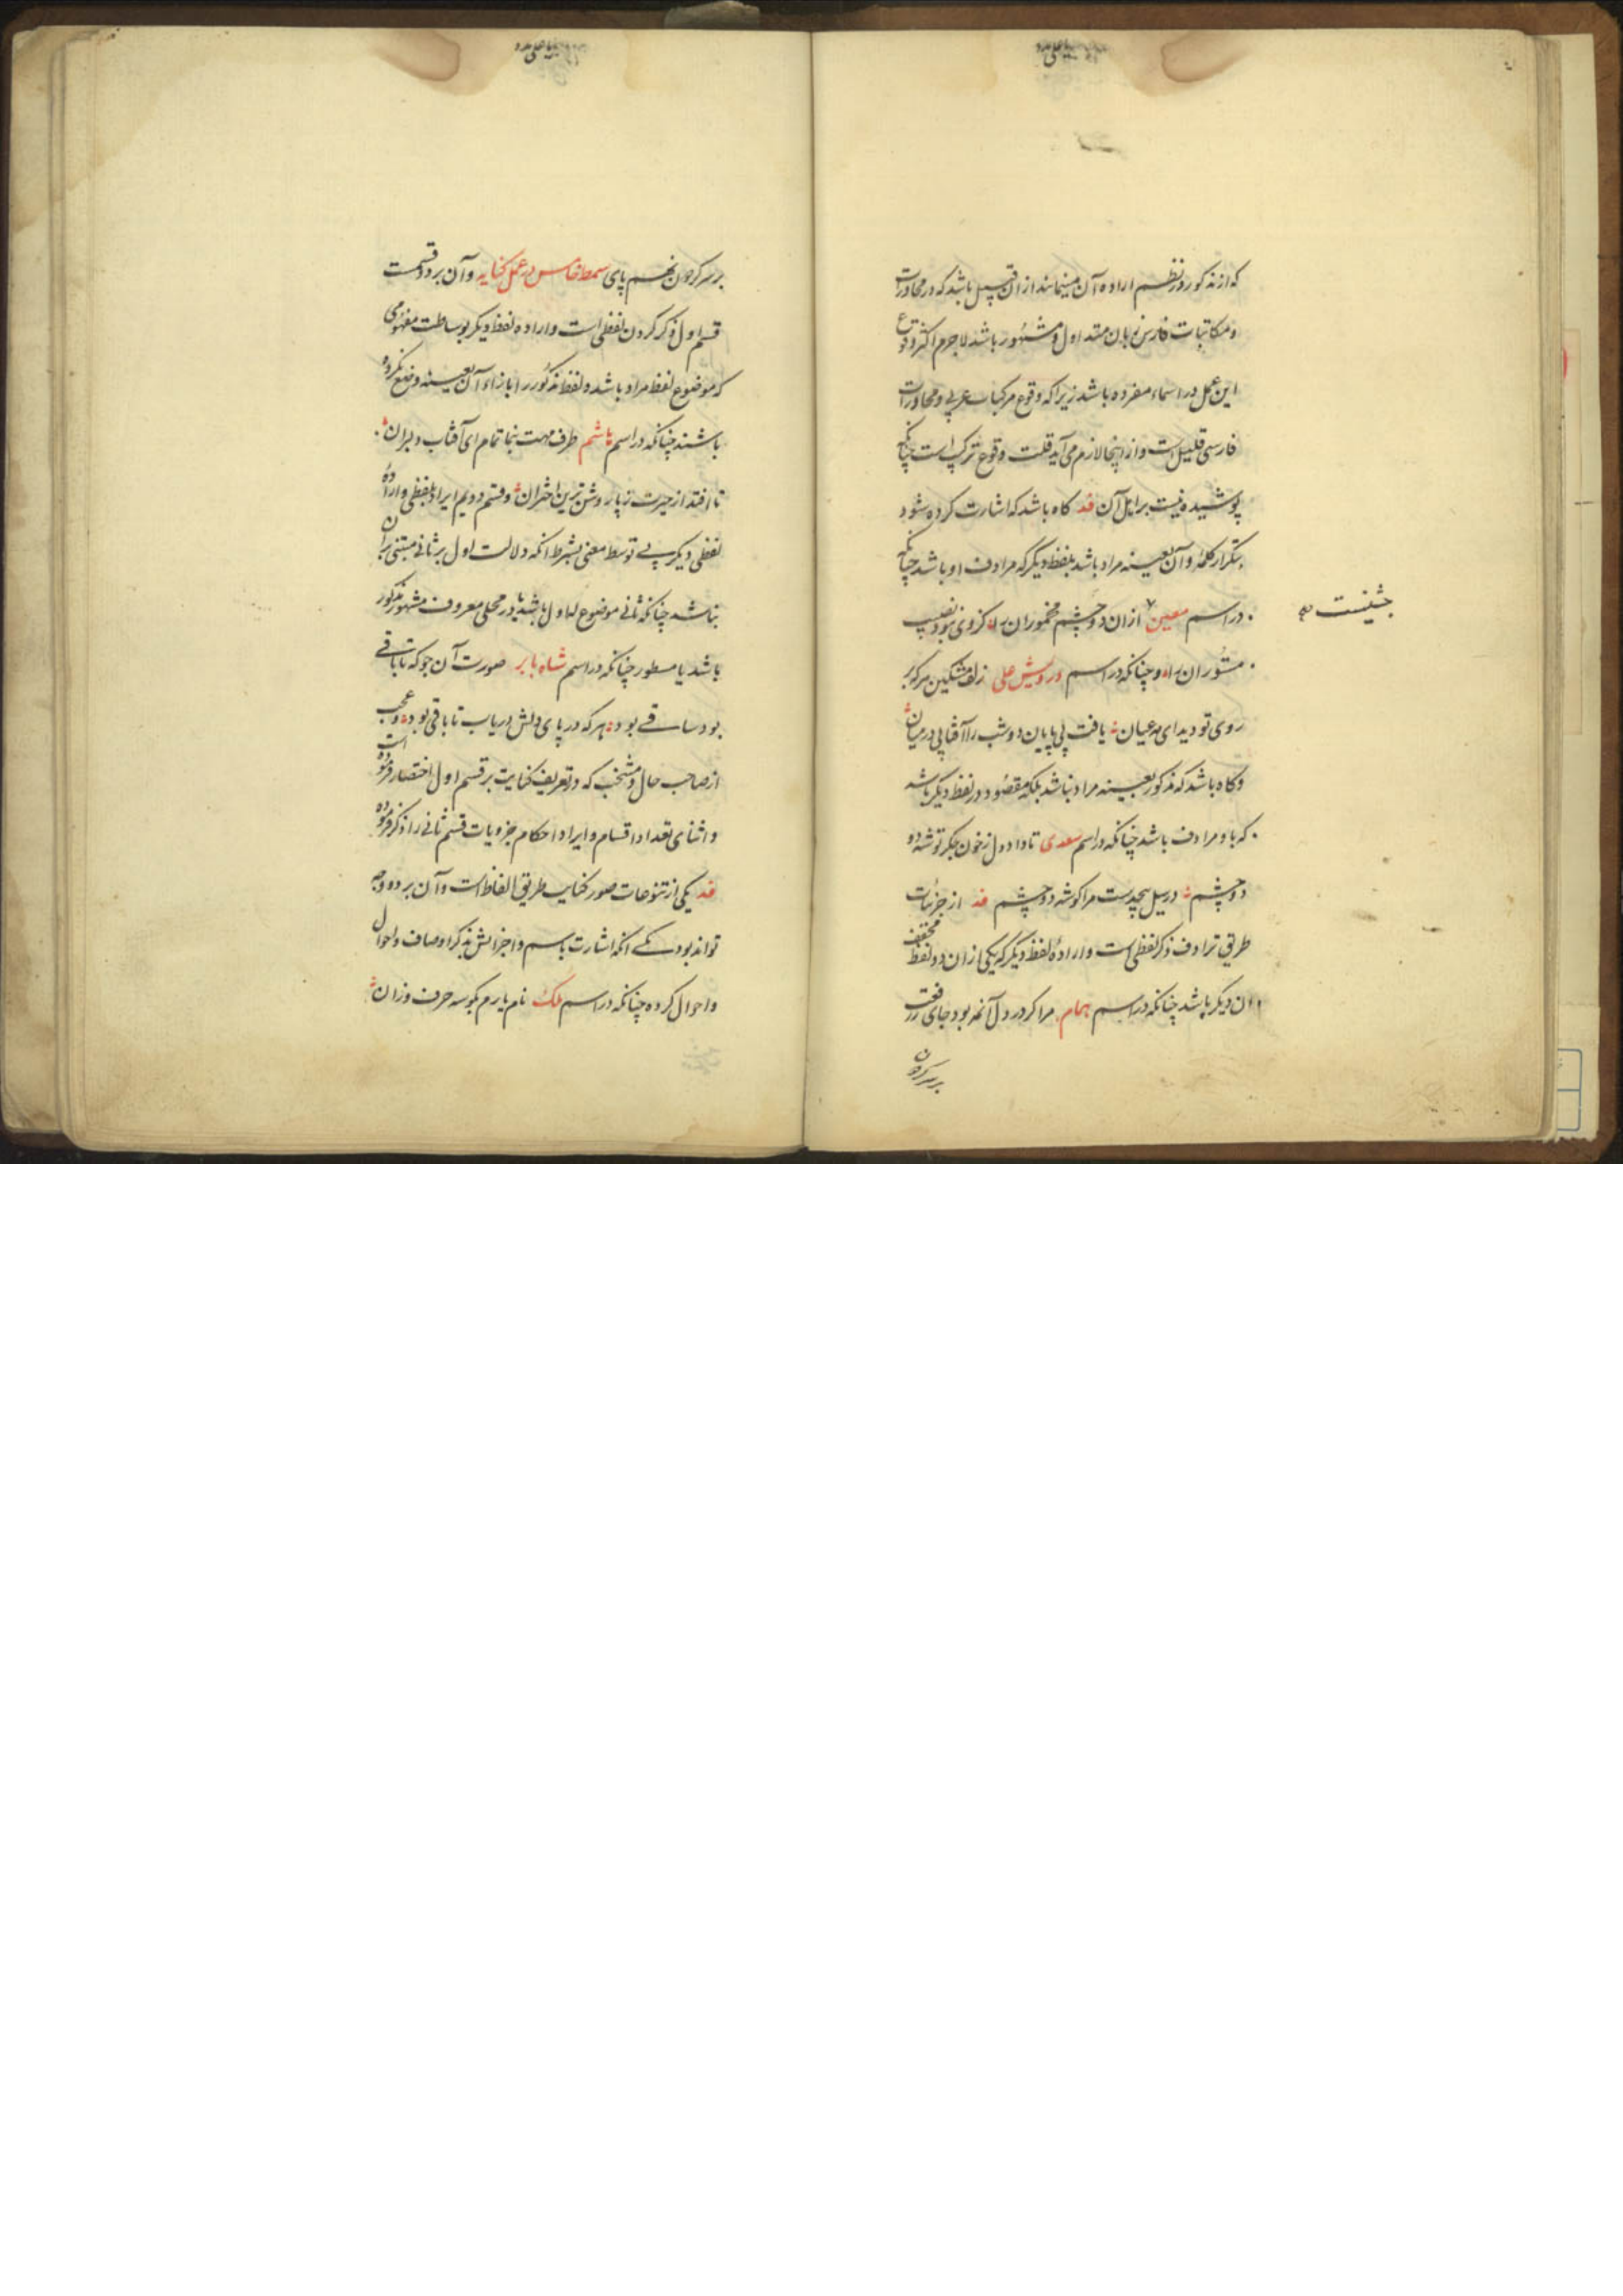 که از مذکور در نظم اراده آن مینمایند از ان قبیل باشد که در محاورات
و مکاتبات فارسی زبان متداول و مشهور باشد لاجرم اکثر وقوع
این عمل در اسماء مفرده باشد زیرا که وقوع مرکبات عربی و محاورات
فارسی قلیل است و از اینجا لازم می آید قلت وقوع ترکیب است چنانکه
پوشیده نیست بر اهل آن قد کاه باشد که اشارت کرده شود
بتکرار کلمه و آن بعینه مراد باشد بلفظ دیگر که مرادف او باشد چنانکه
در اسم معین از ان دو چشم مخموران را کزوی نبود نصیب
مستوران را و چنانکه در اسم درویش علی زلف مشکین هر که بر
روی تو دید ای مه عیان یافت بی پایان دو شب را آفتابی در میان
و کاه باشد که مذکور بعینه مراد نباشد بلکه مقصود در لفظ دیگر باشد
که با و مرادف باشد چنانکه در اسم سعدی تا داد دل ز خون جکر توشه دو
دو چشم در سیل مرا کوشه دو چشم قد از جزئیات
طریق ترادف ذکر لفظی است و اراده لفظ دیگر که یکی از ان دو لفظ مخفف
ان دیگر باشد چنانکه در اسم همام مرا که در دل آنمه بود جای رفعت
بر سر کردون
جثینست
بر سر کردون نهم پای سمط خامس در عمل کنایه و آن بر دو قسمت
قسم اول ذکر کردن لفظی است و اراده لفظ دیگر بوساطت مفهومی
که موضوع لفظ مراد باشد و لفظ مذکور را بازاء آن بعینه وضع نکرده
باشند چنانکه در اسم هاشم طرف مهت بنما تمام ای آفتاب دلبران
تا افتد از حیرت ز پا روشن ترین اختران و قسم دویم ایراد لفظی و اراده
لفظی دیکر بی توسط معنی بشرط انکه دلالت اول بر ثانی مبتنی بران
نباشد چنانکه ثانی موضوع له اول باشد یا در محلی معروف مشهور مذکور
باشد یا مسطور چنانکه در اسم شاه بابر صورت آن جو که تا باقی
بود ساقی بود هر که در پای دلش دریاب تا باقی بود و عجب
از صاحب حال و منتخب که در تعریف کنایت بر قسم اول اختصار فرموده است
و اثنای تعداد اقسام و ایراد احکام جزویات قسم ثانی را ذکر فرموده
قد یکی از تنوعات صور کنایت طریق الفاظ است و آن بر دو وجه
تواند بود یکی انکه اشارت باسم و اجزایش بذکر اوصاف و احوال
و احوال کرده چنانکه در اسم ملک نام یارم بکو سه حرف وزان